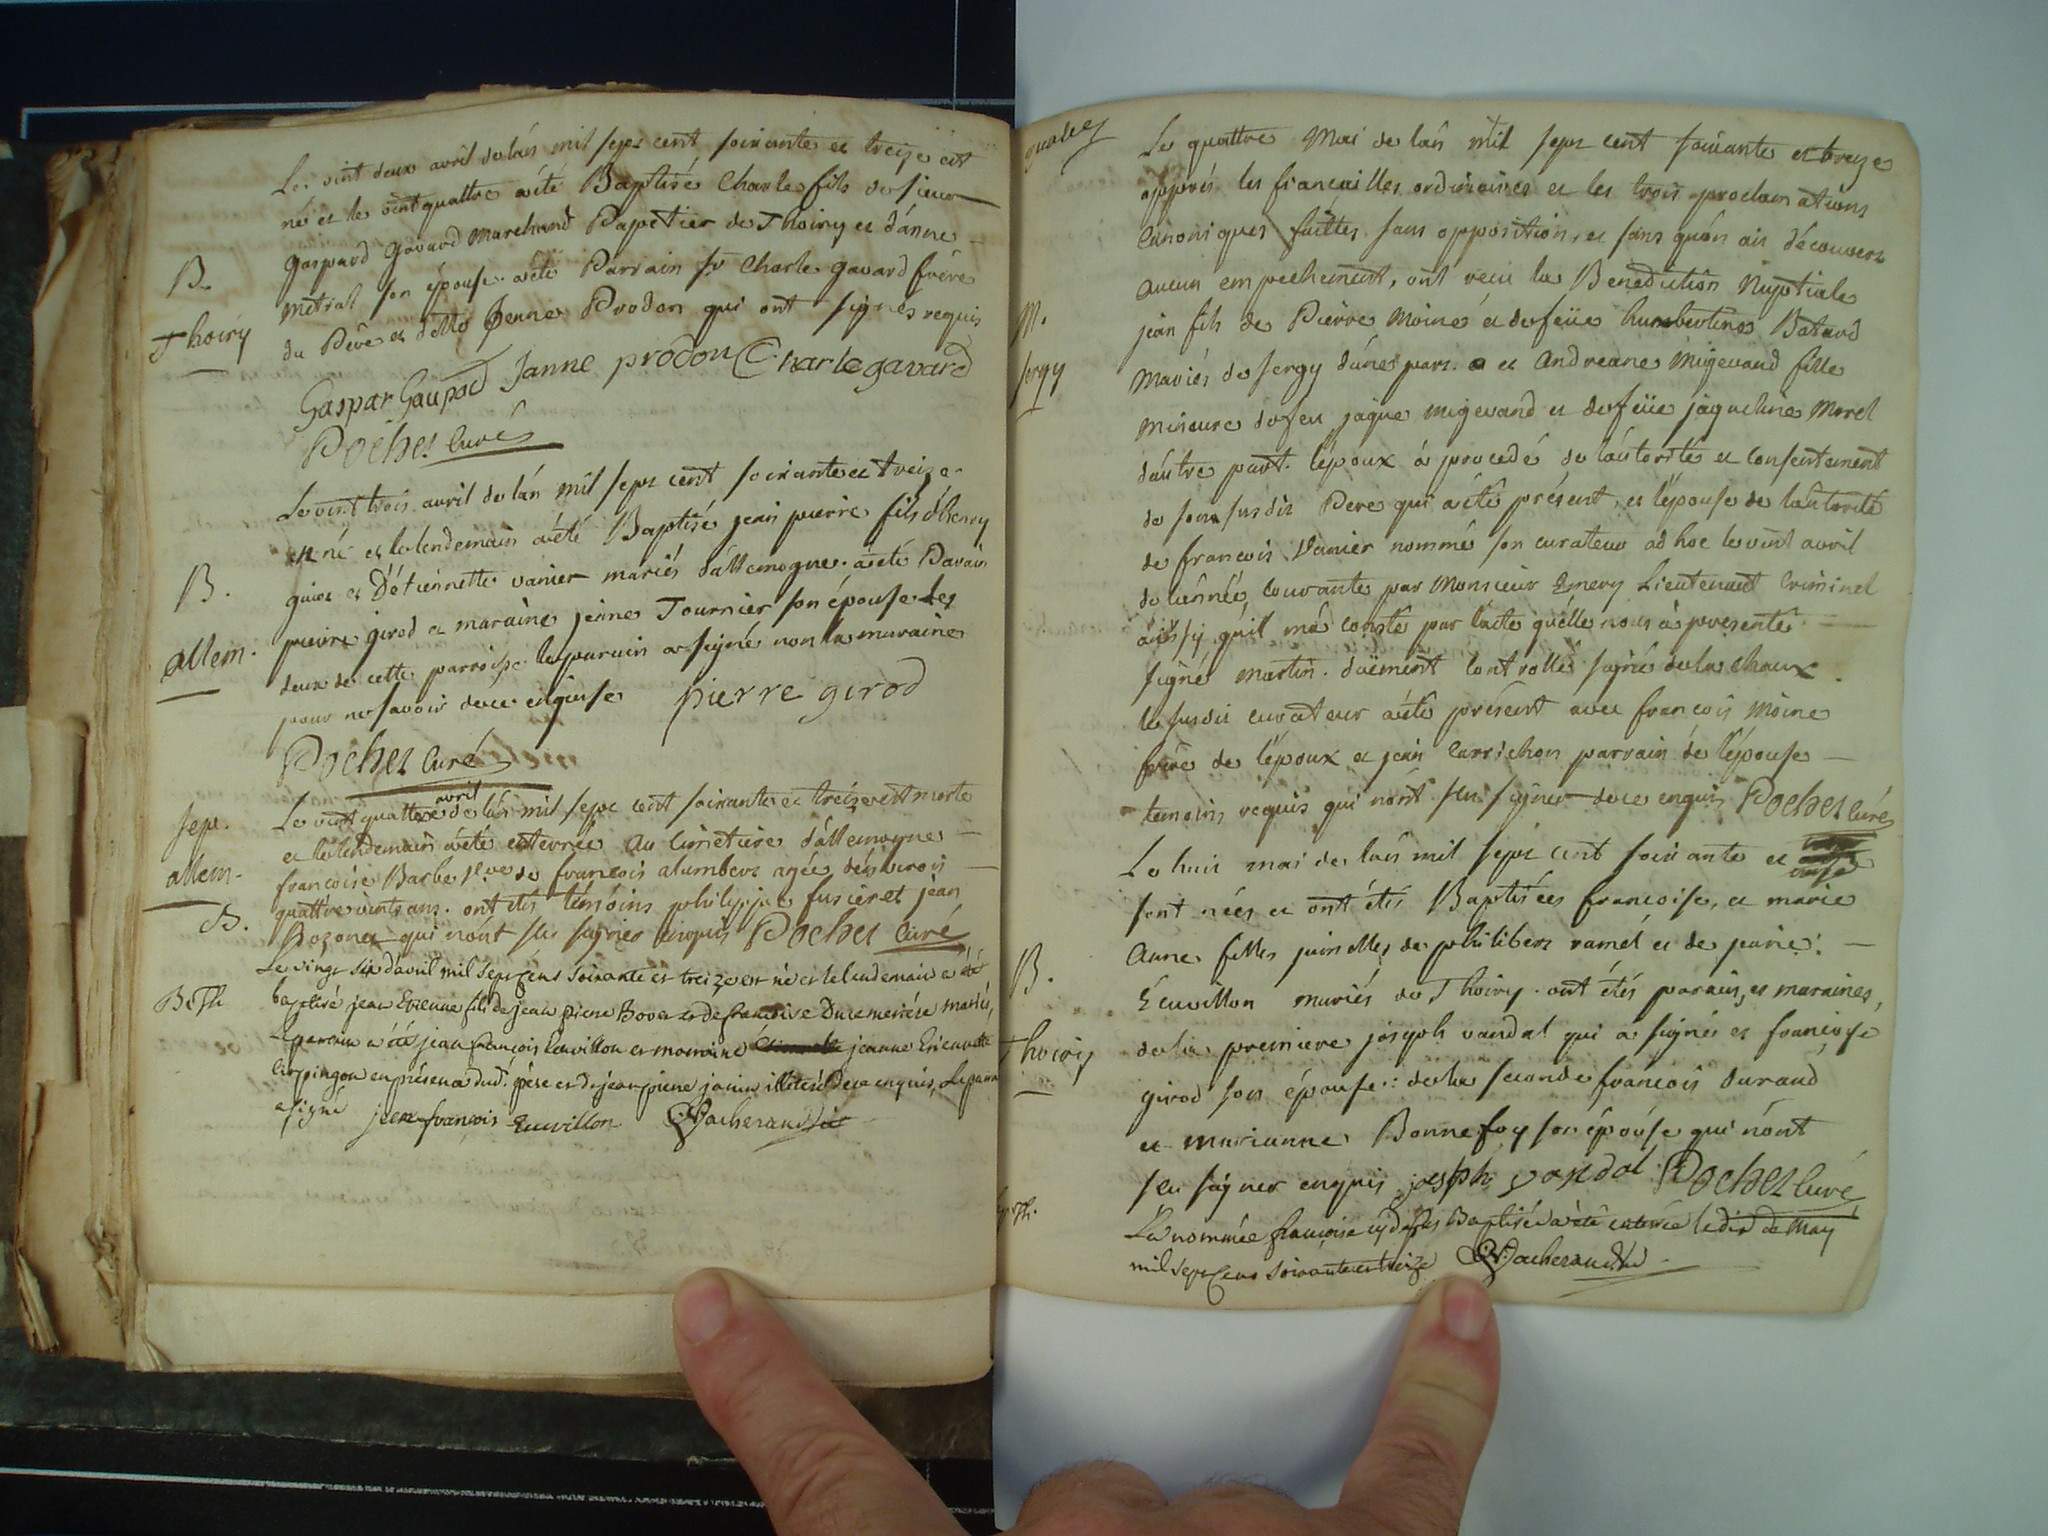 Le vint deux avril de lán mil sept cent soixante et treize est
né et le vint quattre a été Baptisé Charle fils de sieur
Gaspard Gavard marchand Papetier de Thoiry et d'ánne
B.
métral son épouse. a été Parrain sr Charle gavard frère
Thoiry
du Pére et dello Jenne Prodon qui ont signés requis
Gaspar Gavard Janne prodon Charle gavard
Pochet Curé
Le vint trois avril de lán mil sept cent soixante et treize
est né et le lendemain a été Baptisé jean pierre fils d'henry
B.
guiot et D'étiennette vanier mariés d'allemogne. a été Parain
allem.
pierre girod et maraine jeanne Tournier son épouse les
deux de cette parroisse le parain a signé non la maraine
pour ne savoir de ce enquise pierre girod
Pochet Curé
sep.
Le vint quattre avril de lán mil sept cent soixante et treize est morte
allem.
et le lendemain a été enterrée au cimetière d'allemogne
françoise Barbe vve de françois alumbert agée d'environ
quattre vints ans. ont étés témoins philippe fusier et jean
B.
Rozonet qui n'ont seu signer enquis Pochet Curé
Le vingt six d'avril mil sept cens soixante et treize est né et le lendemain a été
B. Th.
baptisé jean Etienne fils de jean pierre Bovet et de francoise Ducemetiére mariés,
le parrain a été jean françois Ecuvillon et marraine jeanne Etiennette
en présence dud. père et de jean pierre janin illitéré de ce enquis, le parrain
a signé jean françois Ecuvillon Vacherand vic
Le quattre Mai de lán mil sept cent soixante et treize
apprés les fiancailles ordinaires et les trois proclamations
Canoniques faittes sans opposition, et sans qu'on ait décovert
aucun empechement, ont reçu la Benediction Nuptiale
M.
jean fils de Pierre Moine et de feüe humbertine Batard
sergy
Mariés de sergy d'une part. et Andreane Migevand fille
mineure de feu jaque migevand et de feüe jaqueline Morel
d'áutre part. l'époux a procedé de l'áutorité et consentement
de son susdit Pere qui a été présent, et l'épouse de l'autorité
de francois Vanier nommé son curateur ad hoc le vint avril
de l'année courante par Monsieur Emery Lieutenant Criminel
ainsy qu'il m'a consté par l'acte quélle nous a presenté
signé martin. düement controllé signé de la chaux.
le susdit curateur a été présent avec françois Moine
frére de l'époux et jean Carrichon parrain de l'épouse
temoins requis qui n'ont seu signer de ce enquis Pochet Curé
Le huit mai de lán mil sept cent soixante et treize
sont nées et ont étés Baptisées francoise, et marie
Anne filles jumelles de philibert ramel et de jeanne
B.
Ecuvillon mariés de Thoiry. ont étés parains, et maraines,
Thoiry
de la premiere joseph vandal qui a signé et françoise
girod son épouse: de la seconde francois durand
et marianne Bonnefoy son épouse qui n'ont
seu signer enquis joseph vandal Pochet Curé
La nommée françoise cy dessus Baptisée a été enterrée le dix de May
mil sept Cens soixante et treize Vacherand vic